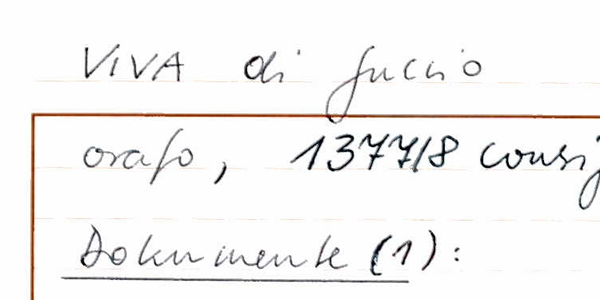 VIVA di Guccio
orafo, 1377/8 consig
Dokumente (1):